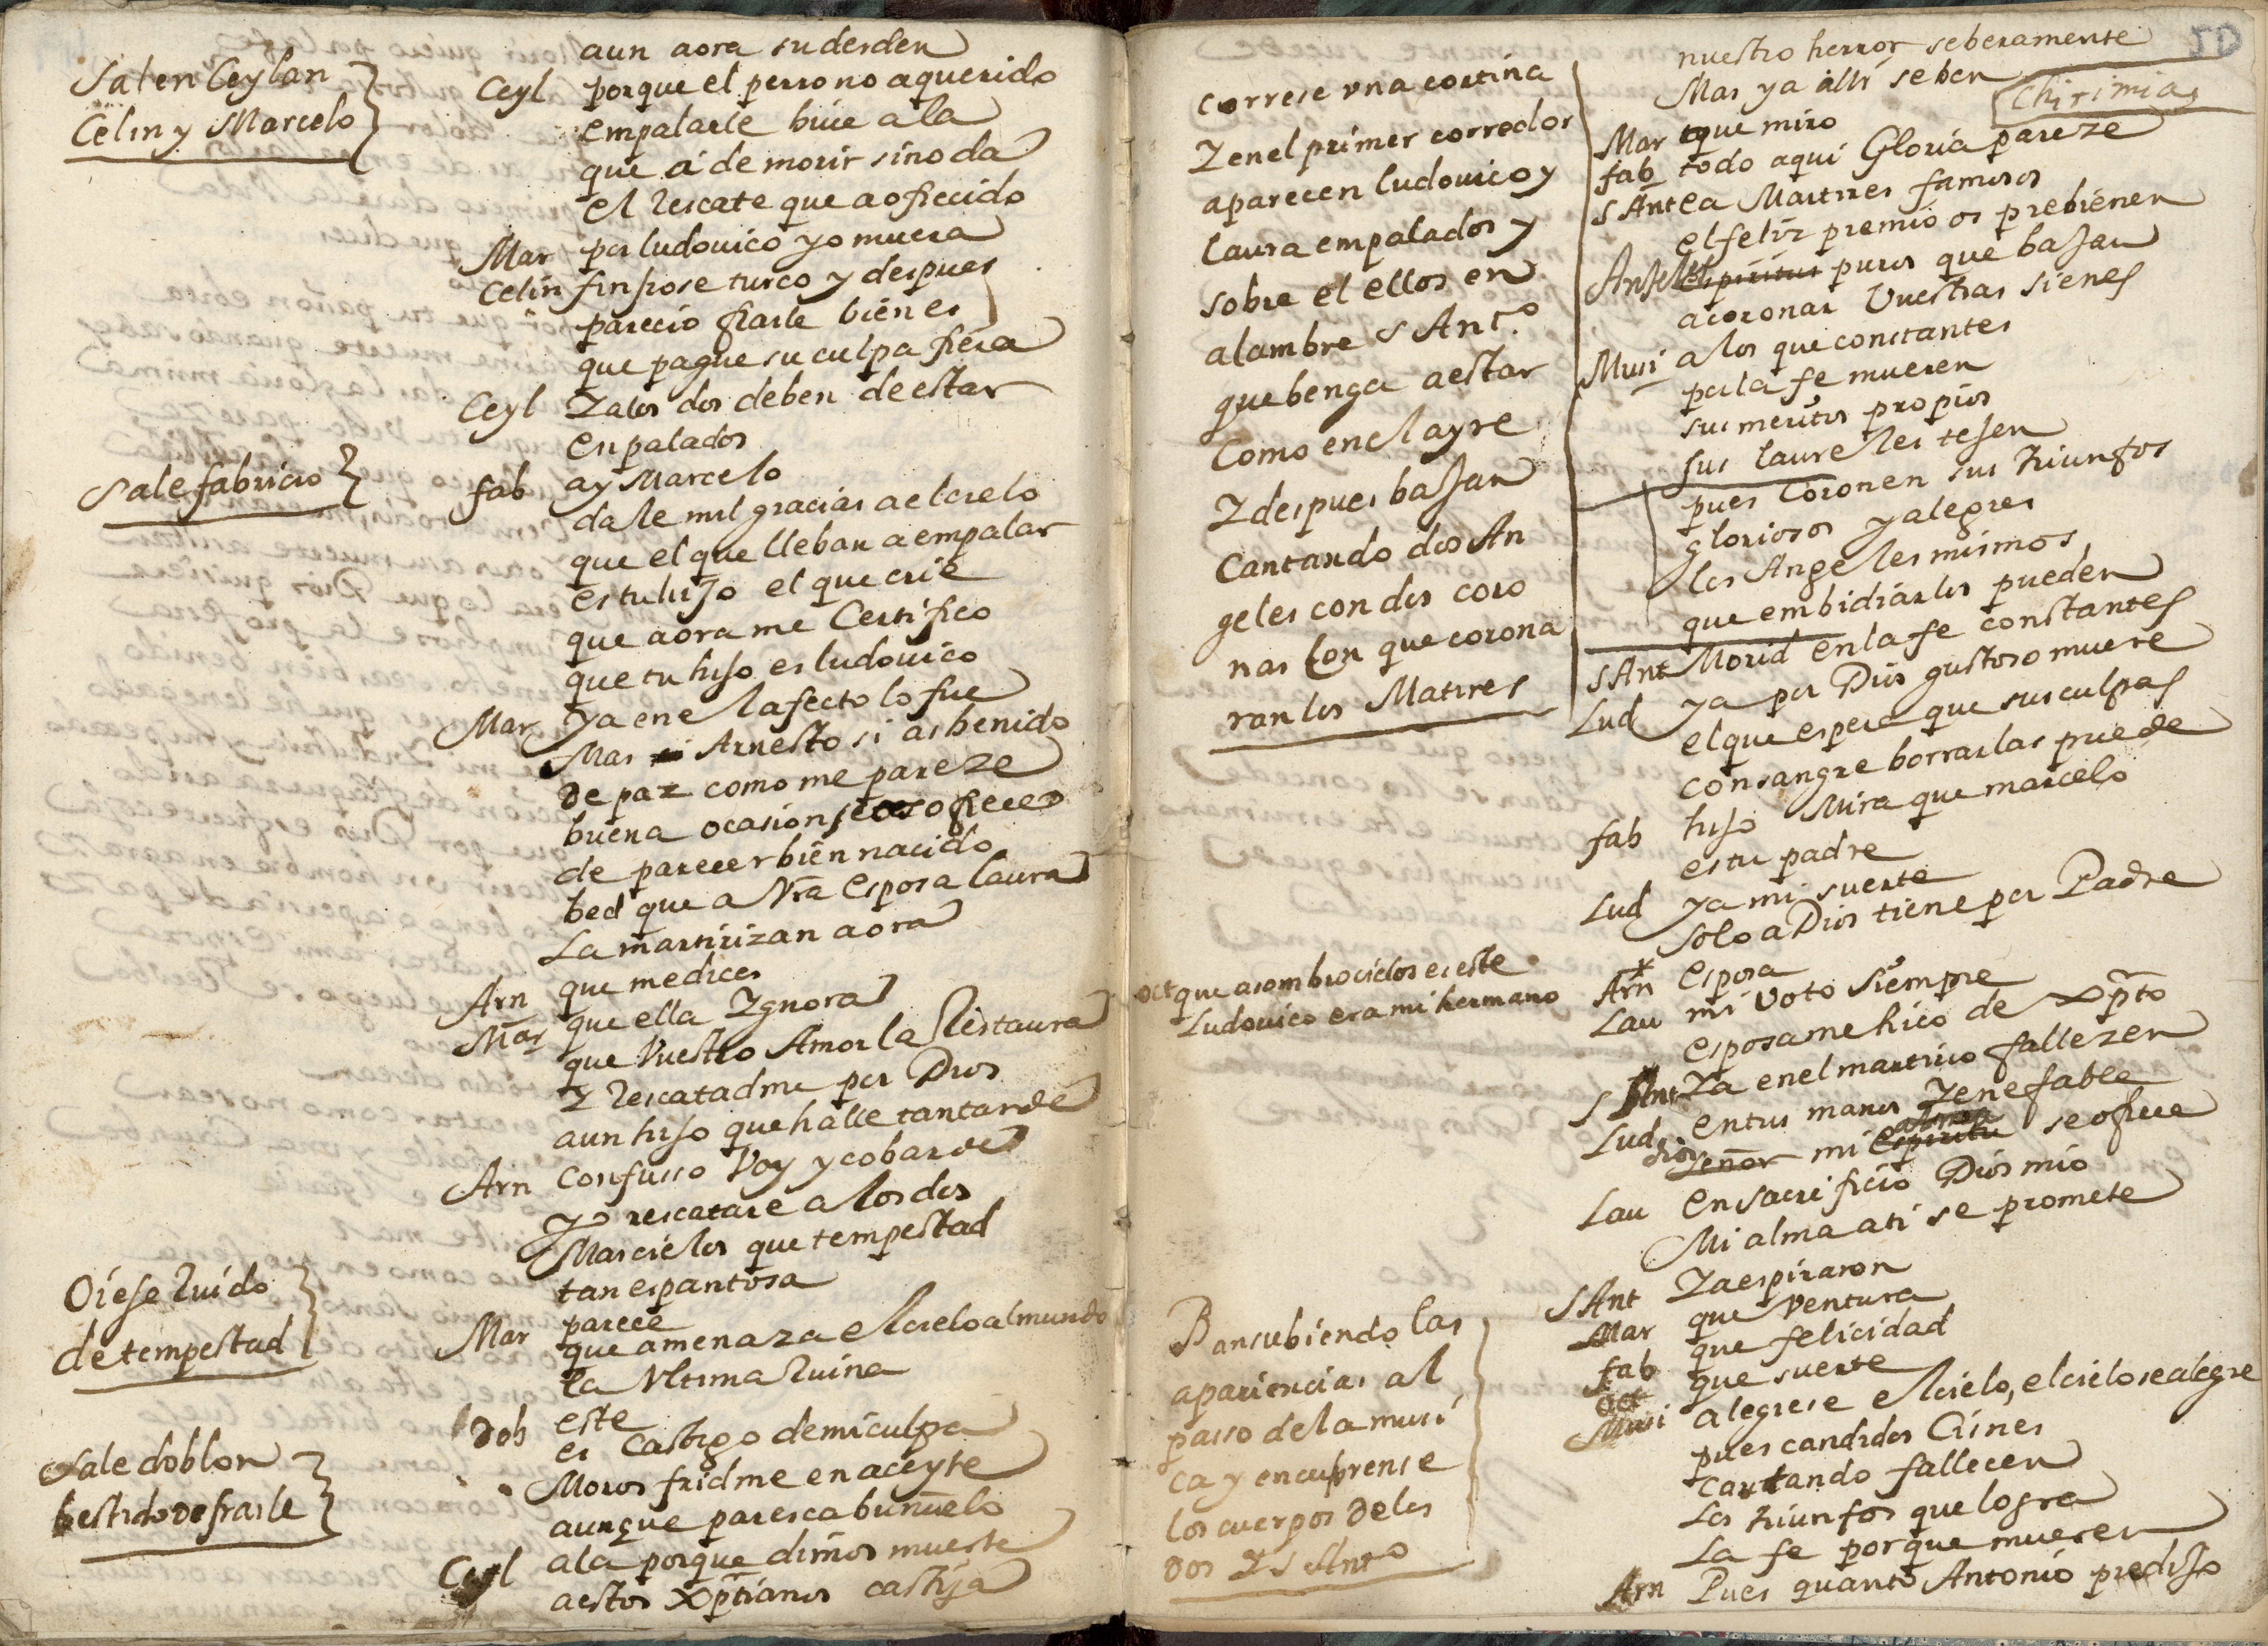 aun aora su desden
Salen Ceylan
Celin y Marcelo
Ceyl porque el perro no a querido
empalarle buie a la
que á de morir sino da
el rescate que a ofrecido
Mar por ludouico yo muera
Celin finjiose turco y despues
parecio fiarle bien es
que pague su culpa fiera
Ceyl Y a los dos deben de estar
enpalados
Sale fabricio
fab ay Marcelo
dale mil gracias a el cielo
que el que lleban a empalar
es tu hijo el que crie
que aora me Certifico
que tu hijo es ludouico
Mar ya en el afecto lo fue
Mas Arnesto si as benido
de paz como me pareze
buena ocasion se os ofrece
de parecer bien nacido
bed que a Vra esposa laura
La martirizan aora
Arn que me dices
Mar que ella Ygnora
que Vuestro Amor la Restaura
Y rescatadme por Dios
a un hijo que halle tan tarde
Arn Confusso Voy y cobarde
Yo rescatare a los dos
Mas cielos que tempestad
tan espantosa
Oiese Ruido
de tempestad
Mar parece
que amenaza el cielo al mundo
la Vltima Ruina
Sale doblon
bestido de fraile
Dob este
es Castigo de mi culpa
Moros fridme en aceyte
aunque paresca buñuelo
Ceyl ala porque dimos muerte
a estos xptianos castija
Correse vna cortina
Y en el primer corredor
aparecen ludouico y
laura empalados y
sobre el ellos en
alambre S Ant.º
que benga a estar
Como en el ayre
Y despues bajan
Cantando dos An
geles con dos coro
nas Con que corona
ran los Matires
Oct que asombro cielos es este
Ludouico era mi hermano
Ban subiendo las
apariencias al
passo de la musi
ca y encubrense
los cuerpos de los
dos Y S Antº
50
nuestro herror seberamente
Mas ya alli se ben
Chirimias
Mar que miro
fab todo aqui Gloria pareze
S Ant ea Martires famosos
el feliz premio os prebienen
Anjeles espiritus puros que bajan
a coronar Vuestras sienes
Musi a los que constantes
por la fe mueren
sus meritos propios
sus laureles tejen
pues Coronen sus triunfos
gloriosos y alegres
los Angeles mismos
que embidiarlos pueden
S Ant Morid en la fe constantes
Lud ya por Dios gustoso muere
el que espera que sus culpas
con sangre borrarlas puede
fab hijo Mira que marcelo
es tu padre
Lud ya mi suerte
solo a Dios tiene por Padre
Arn esposa
Lau mi Voto siempre
esposa me hico de xpto
S Ant Ya en el martirio fallezen
Lud en tus manos Ynefable
dios Señor mi espiritu alma se ofrece
Lau en sacrificio Dios mio
Mi alma a ti se promete
S Ant Ya espiraron
Mar que Ventura
fab que felicidad
Oct que suerte
Musi alegrese el cielo, el cielo se alegre
pues candidos Cisnes
cantando fallecen
Los triunfos que logra
La fe porque mueren
Arn Pues quanto Antonio predijo